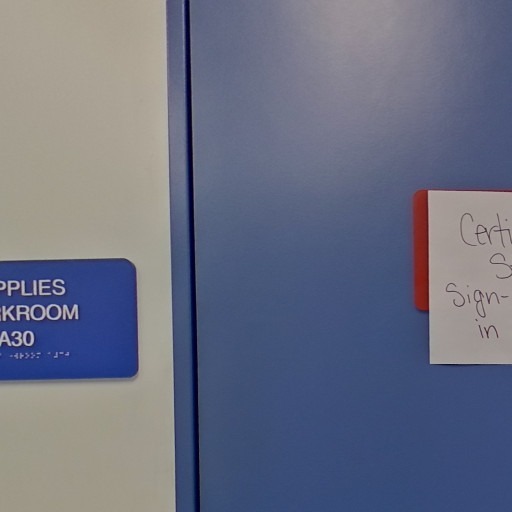 PPLIES
RKROOM
A30
Certi
S
Sign-
in